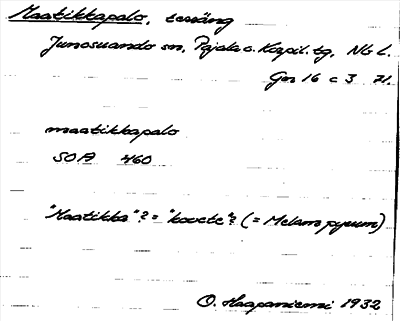 Maatikkapalo, terräng
Junosuando sn, Pajala o. Korpil. tg, Nb l.
Gen 16 c 3 71.
maatikkapalo
SOA 460
"Maatikka"? = "kovete"? (= Melampyrum)
O. Haapaniemi 1932